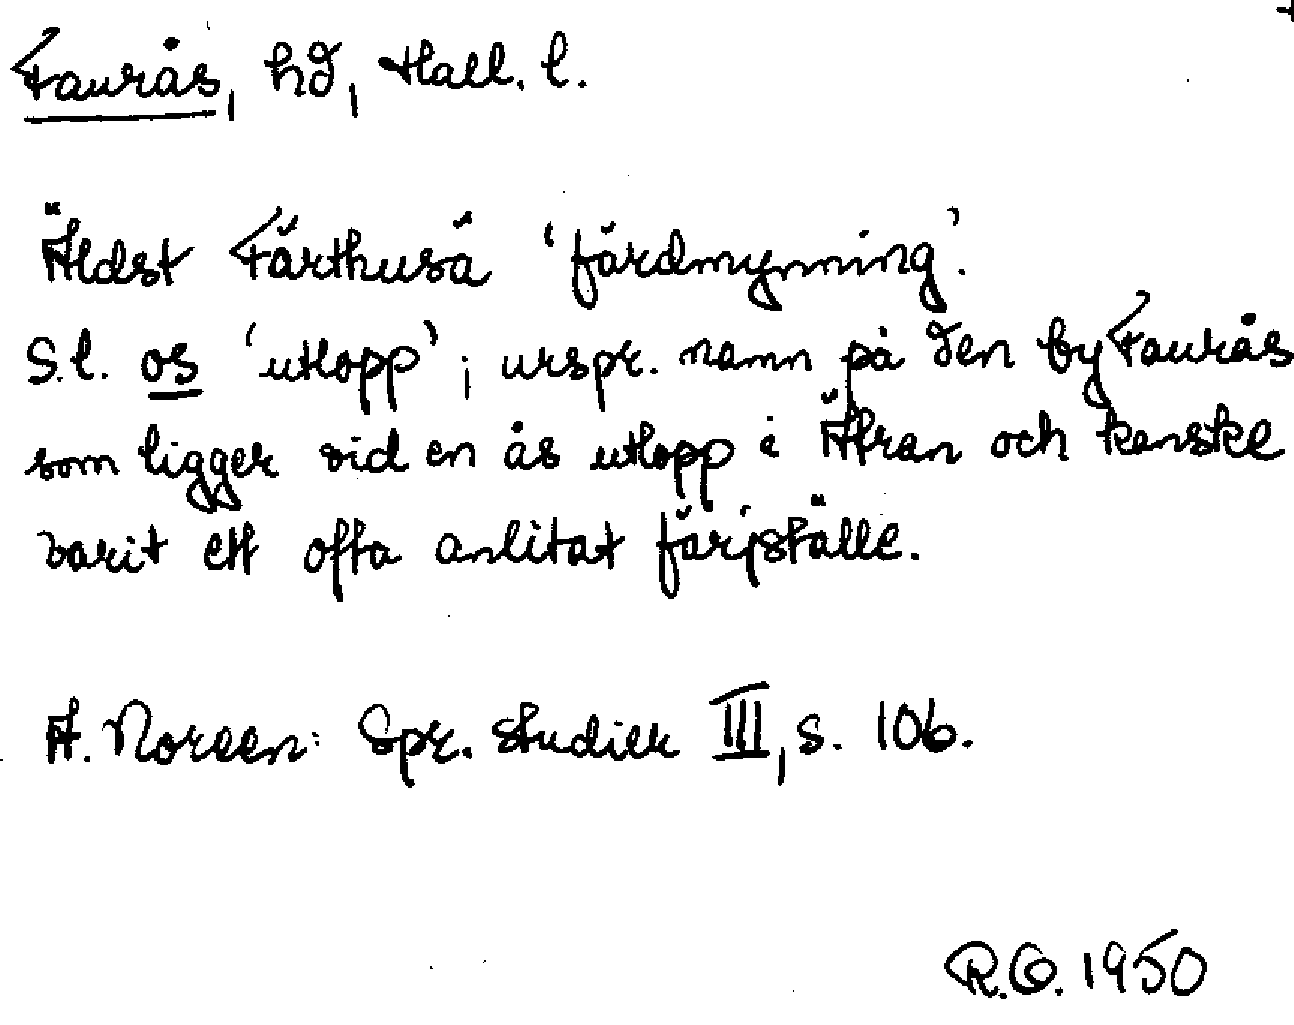 Faurås, hd, Hall. l.
Äldst Färthusä 'färdmynning'.
S.l. os 'utlopp'; urspr. namn på den by Faurås
som ligger vid en ås utlopp i Ätran och kanske
varit ett ofta anlitat färjställe.
A. Noreen: Spr. studier III, s. 106.
R.G. 1950